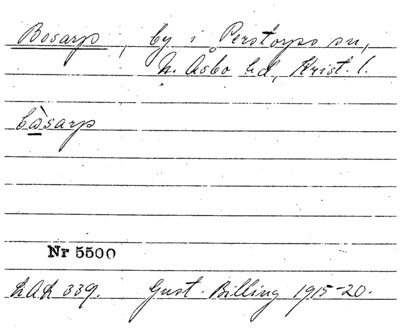 Bosarp, by i Perstorps sn,
N. Åsbo hd, Krist. l.
bò̲sarp
Nr 5500
LAL 339. Gust. Billing 1915-20.